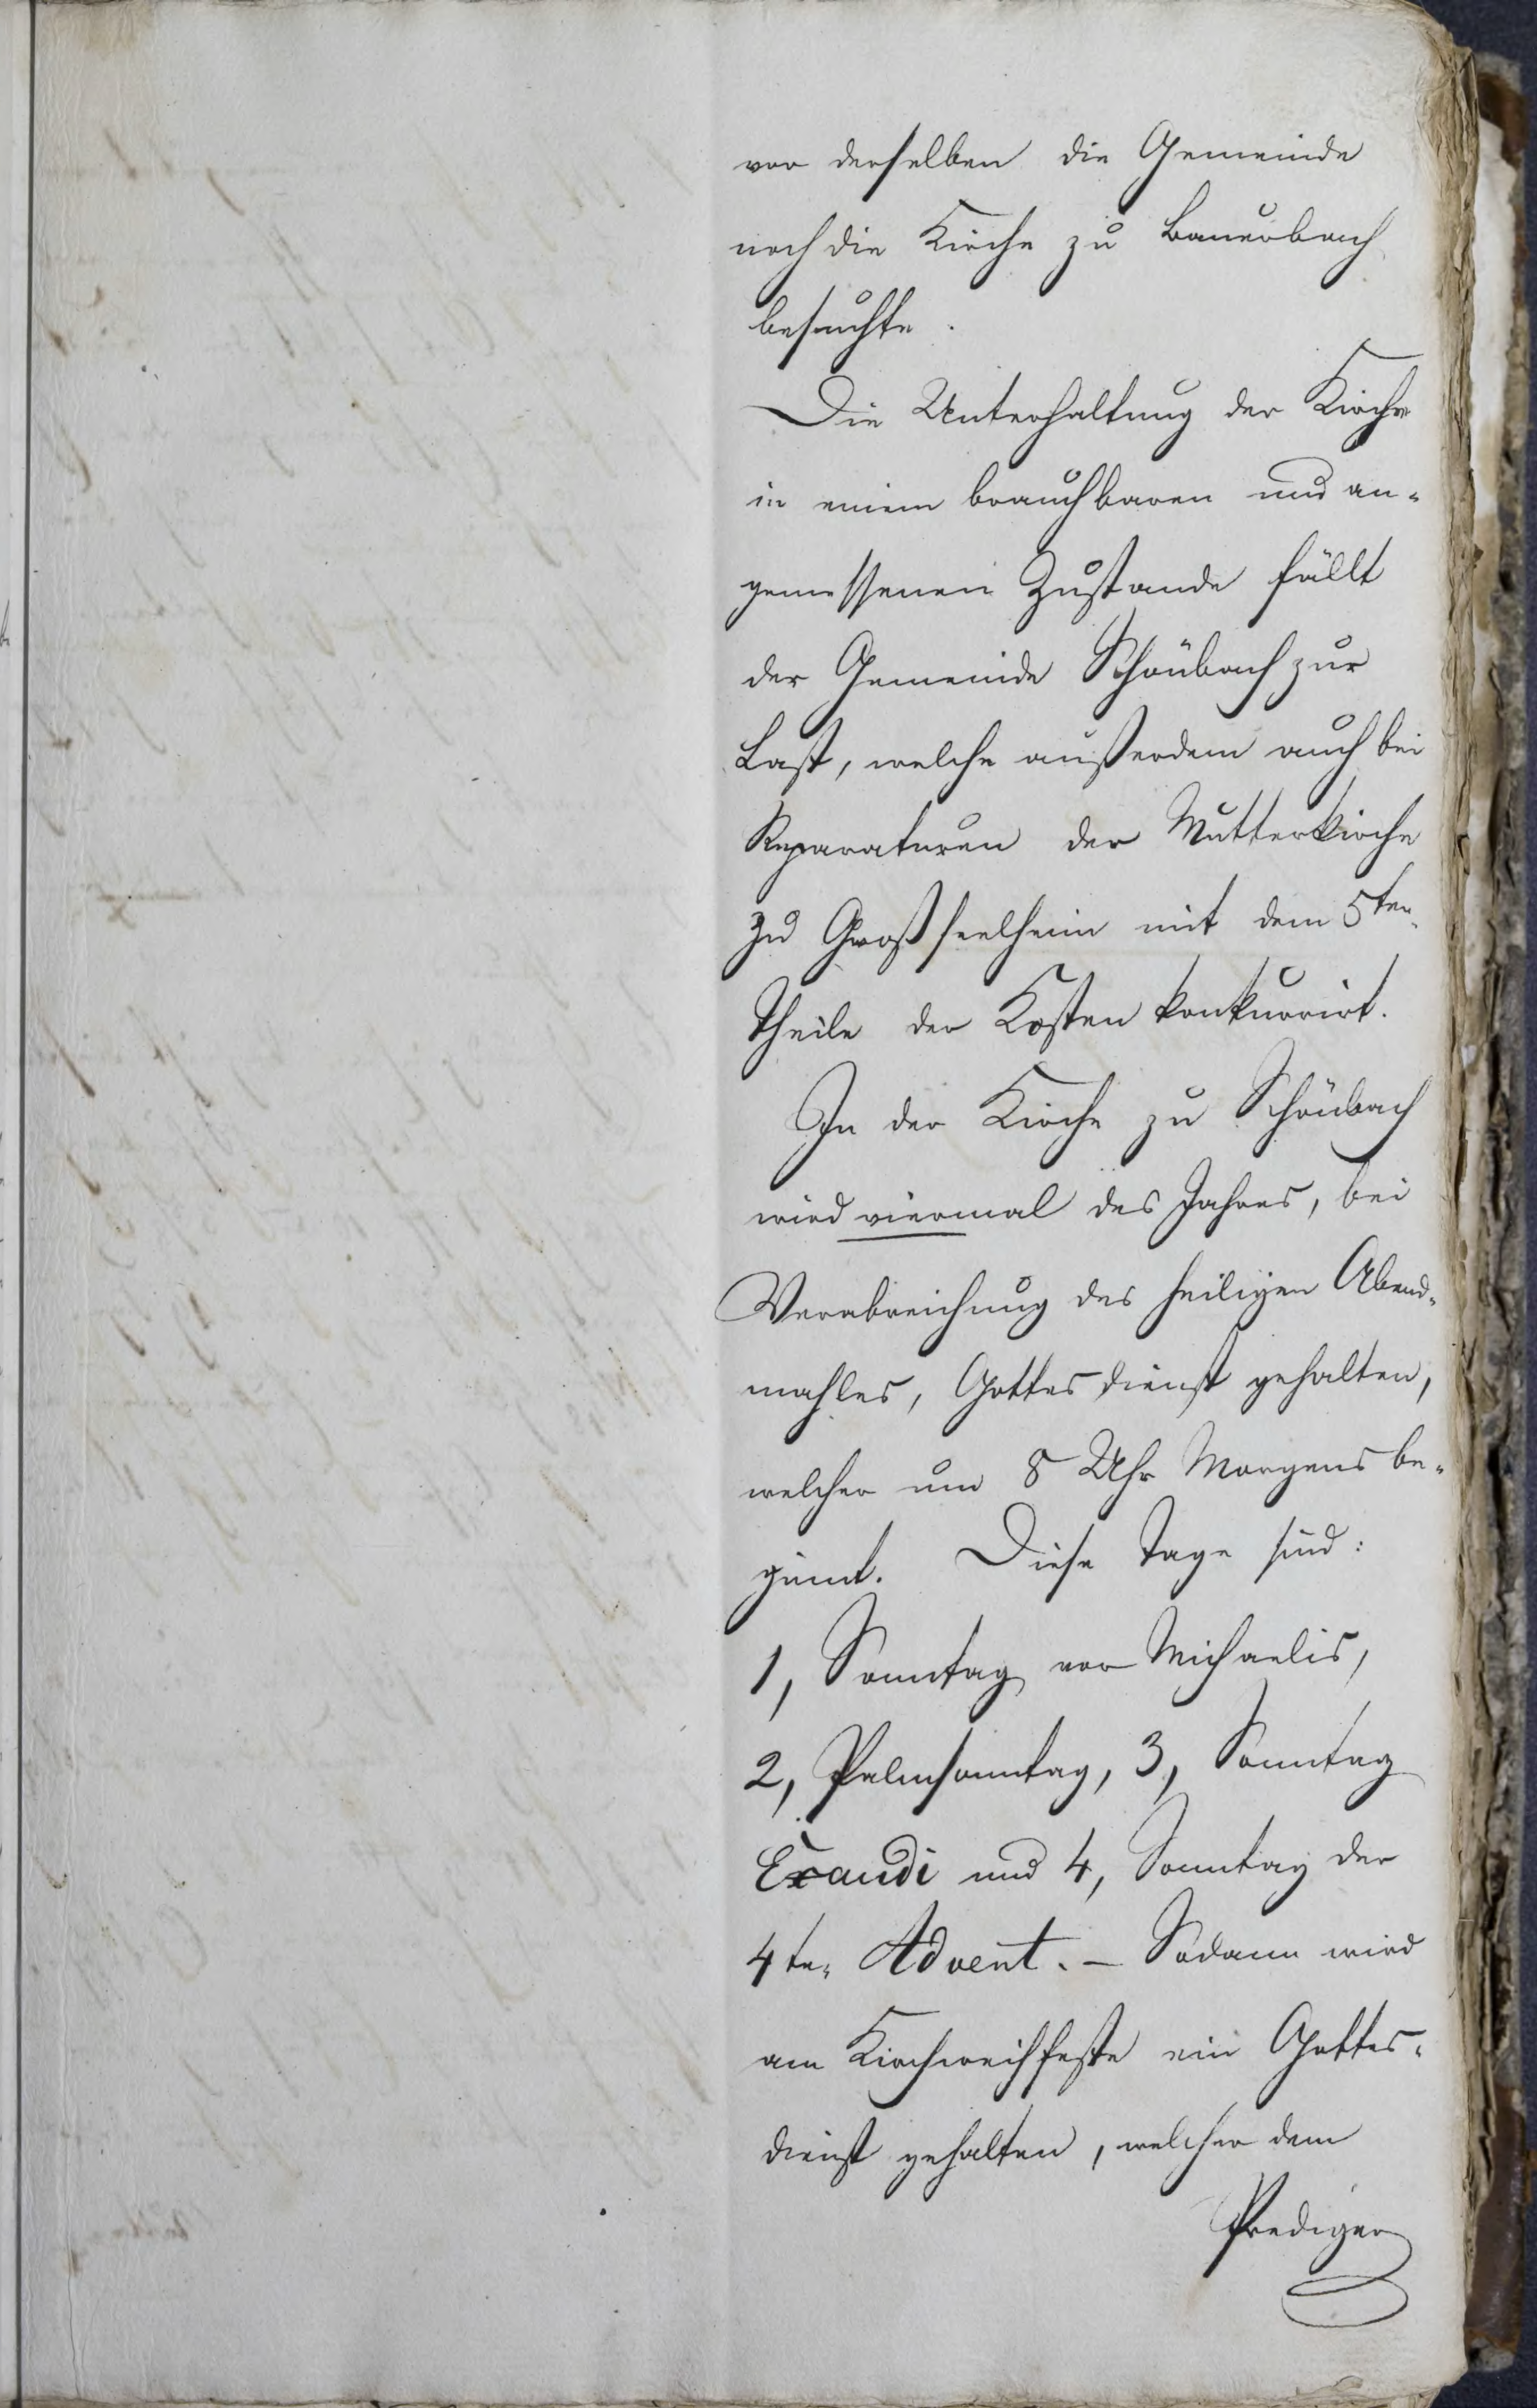 vor derselben die Gemeinde
noch die Kirche zu Bauerbach
besuchte.
Die Unterhaltung der Kirche
in einem brauchbaren und an-
gemessenen Zustande fällt
der Gemeinde Schönbach zur
Last, welche außerdem auch bei
Reparaturen der Mutterkirche
zu Großseelheim mit dem 5ten
Theile der Kosten konkurrirt.
In der Kirche zu Schönbach
wird viermal des Jahres, bei
Verabreichung des heiligen Abend-
mahles, Gottesdienst gehalten,
welcher um 8 Uhr Morgens be-
ginnt. Diese Tage sind:
1, Sonntag vor Michaelis,
2, Palmsonntag, 3, Sonntag
Exaudi und 4, Sonntag der
4te Advent. – Sodann wird
am Kirchweihfeste ein Gottes-
dienst gehalten, welcher dem
Prediger